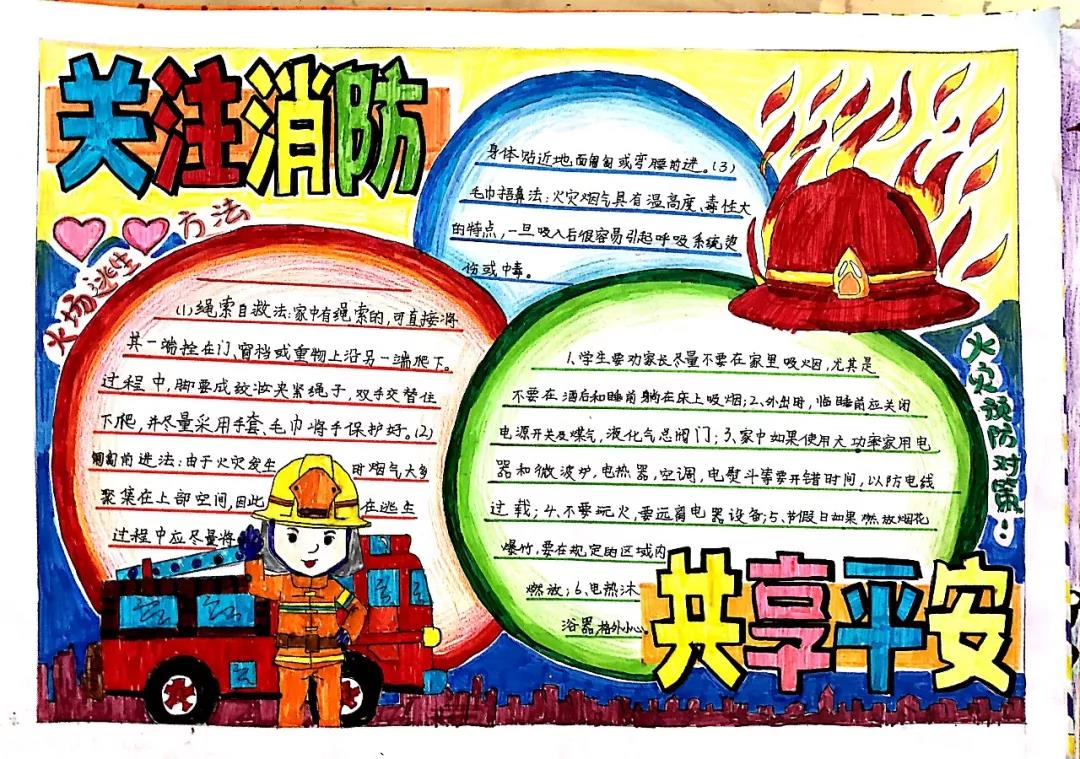 关注消防
火场逃生方法
(1)绳索自救法:家中有绳索的,可直接将
其一端拴在门、窗档或重物上沿另一端爬下。
过程中,脚要成绞状夹紧绳子,双手交替往
下爬,并尽量采用手套、毛巾将手保护好。(2)
匍匐前进法:由于火灾发生时烟气大多
聚集在上部空间,因此在逃生
过程中应尽量将
身体贴近地面匍匐或弯腰前进。(3)
毛巾捂鼻法:火灾烟气具有温高度、毒性大
的特点,一旦吸入后很容易引起呼吸系统烫
伤或中毒。
火灾预防对策:
1、学生要劝家长尽量不要在家里吸烟,尤其是
不要在酒后和睡前躺在床上吸烟;2、外出时,临睡前应关闭
电源开关及煤气,液化气总阀门;3、家中如果使用大功率家用电
器和微波炉,电热器,空调,电熨斗等要开错时间,以防电线
过载;4、不要玩火,要远离电器设备;5、节假日如果燃放烟花
爆竹,要在规定的区域内
燃放;6、电热沐
浴器格外小心
共享平安